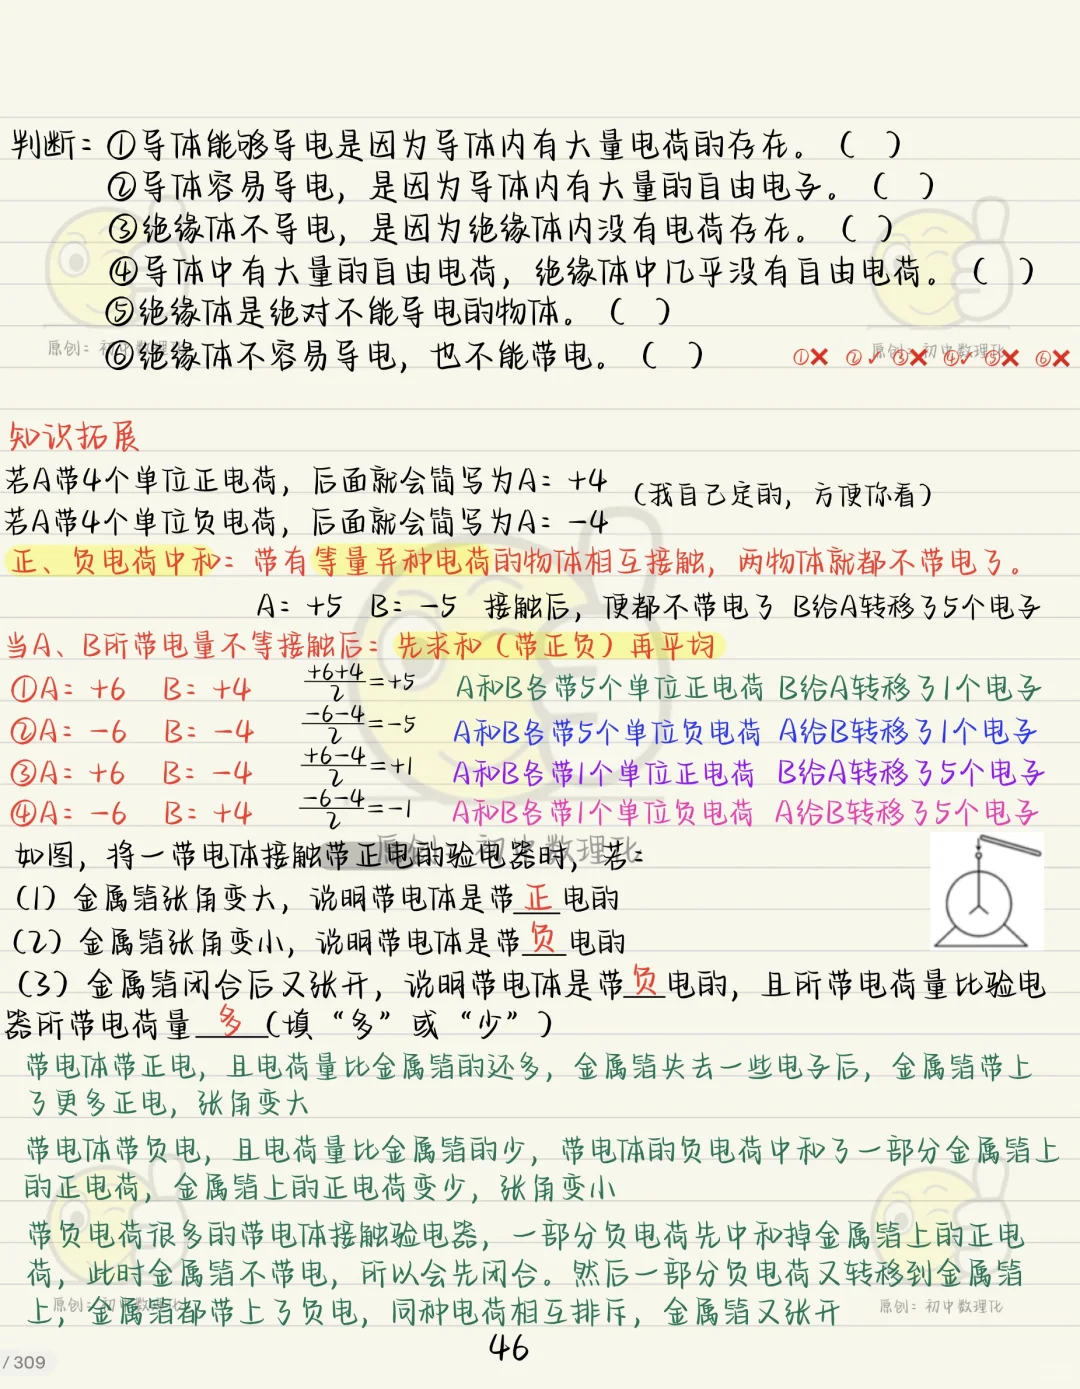 判断：①导体能够导电是因为导体内有大量电荷的存在。（ ）
②导体容易导电，是因为导体内有大量的自由电子。（ ）
③绝缘体不导电，是因为绝缘体内没有电荷存在。（ ）
④导体中有大量的自由电荷，绝缘体中几乎没有自由电荷。（ ）
⑤绝缘体是绝对不能导电的物体。（ ）
原创：初中数理化
⑥绝缘体不容易导电，也不能带电。（ ）
原创：初中数理化
①❌ ②✓ ③❌ ④✓ ⑤❌ ⑥❌
知识拓展
若A带4个单位正电荷，后面就会简写为A：+4
（我自己定的，方便你看）
若A带4个单位负电荷，后面就会简写为A：-4
正、负电荷中和：带有等量异种电荷的物体相互接触，两物体就都不带电了。
A：+5 B：-5 接触后，便都不带电了 B给A转移了5个电子
当A、B所带电量不等接触后：先求和（带正负）再平均
①A：+6 B：+4 (+6+4)/2=+5 A和B各带5个单位正电荷 B给A转移了1个电子
②A：-6 B：-4 (-6-4)/2=-5 A和B各带5个单位负电荷 A给B转移了1个电子
③A：+6 B：-4 (+6-4)/2=+1 A和B各带1个单位正电荷 B给A转移了5个电子
④A：-6 B：+4 (-6-4)/2=-1 A和B各带1个单位负电荷 A给B转移了5个电子
原创：初中数理化
如图，将一带电体接触带正电的验电器时，若：
（1）金属箔张角变大，说明带电体是带正电的
（2）金属箔张角变小，说明带电体是带负电的
（3）金属箔闭合后又张开，说明带电体是带负电的，且所带电荷量比验电
器所带电荷量多（填“多”或“少”）
带电体带正电，且电荷量比金属箔的还多，金属箔失去一些电子后，金属箔带上
了更多正电，张角变大
带电体带负电，且电荷量比金属箔的少，带电体的负电荷中和了一部分金属箔上
的正电荷，金属箔上的正电荷变少，张角变小
带负电荷很多的带电体接触验电器，一部分负电荷先中和掉金属箔上的正电
荷，此时金属箔不带电，所以会先闭合。然后一部分负电荷又转移到金属箔
上，金属箔都带上了负电，同种电荷相互排斥，金属箔又张开
原创：初中数理化
原创：初中数理化
46
/ 309